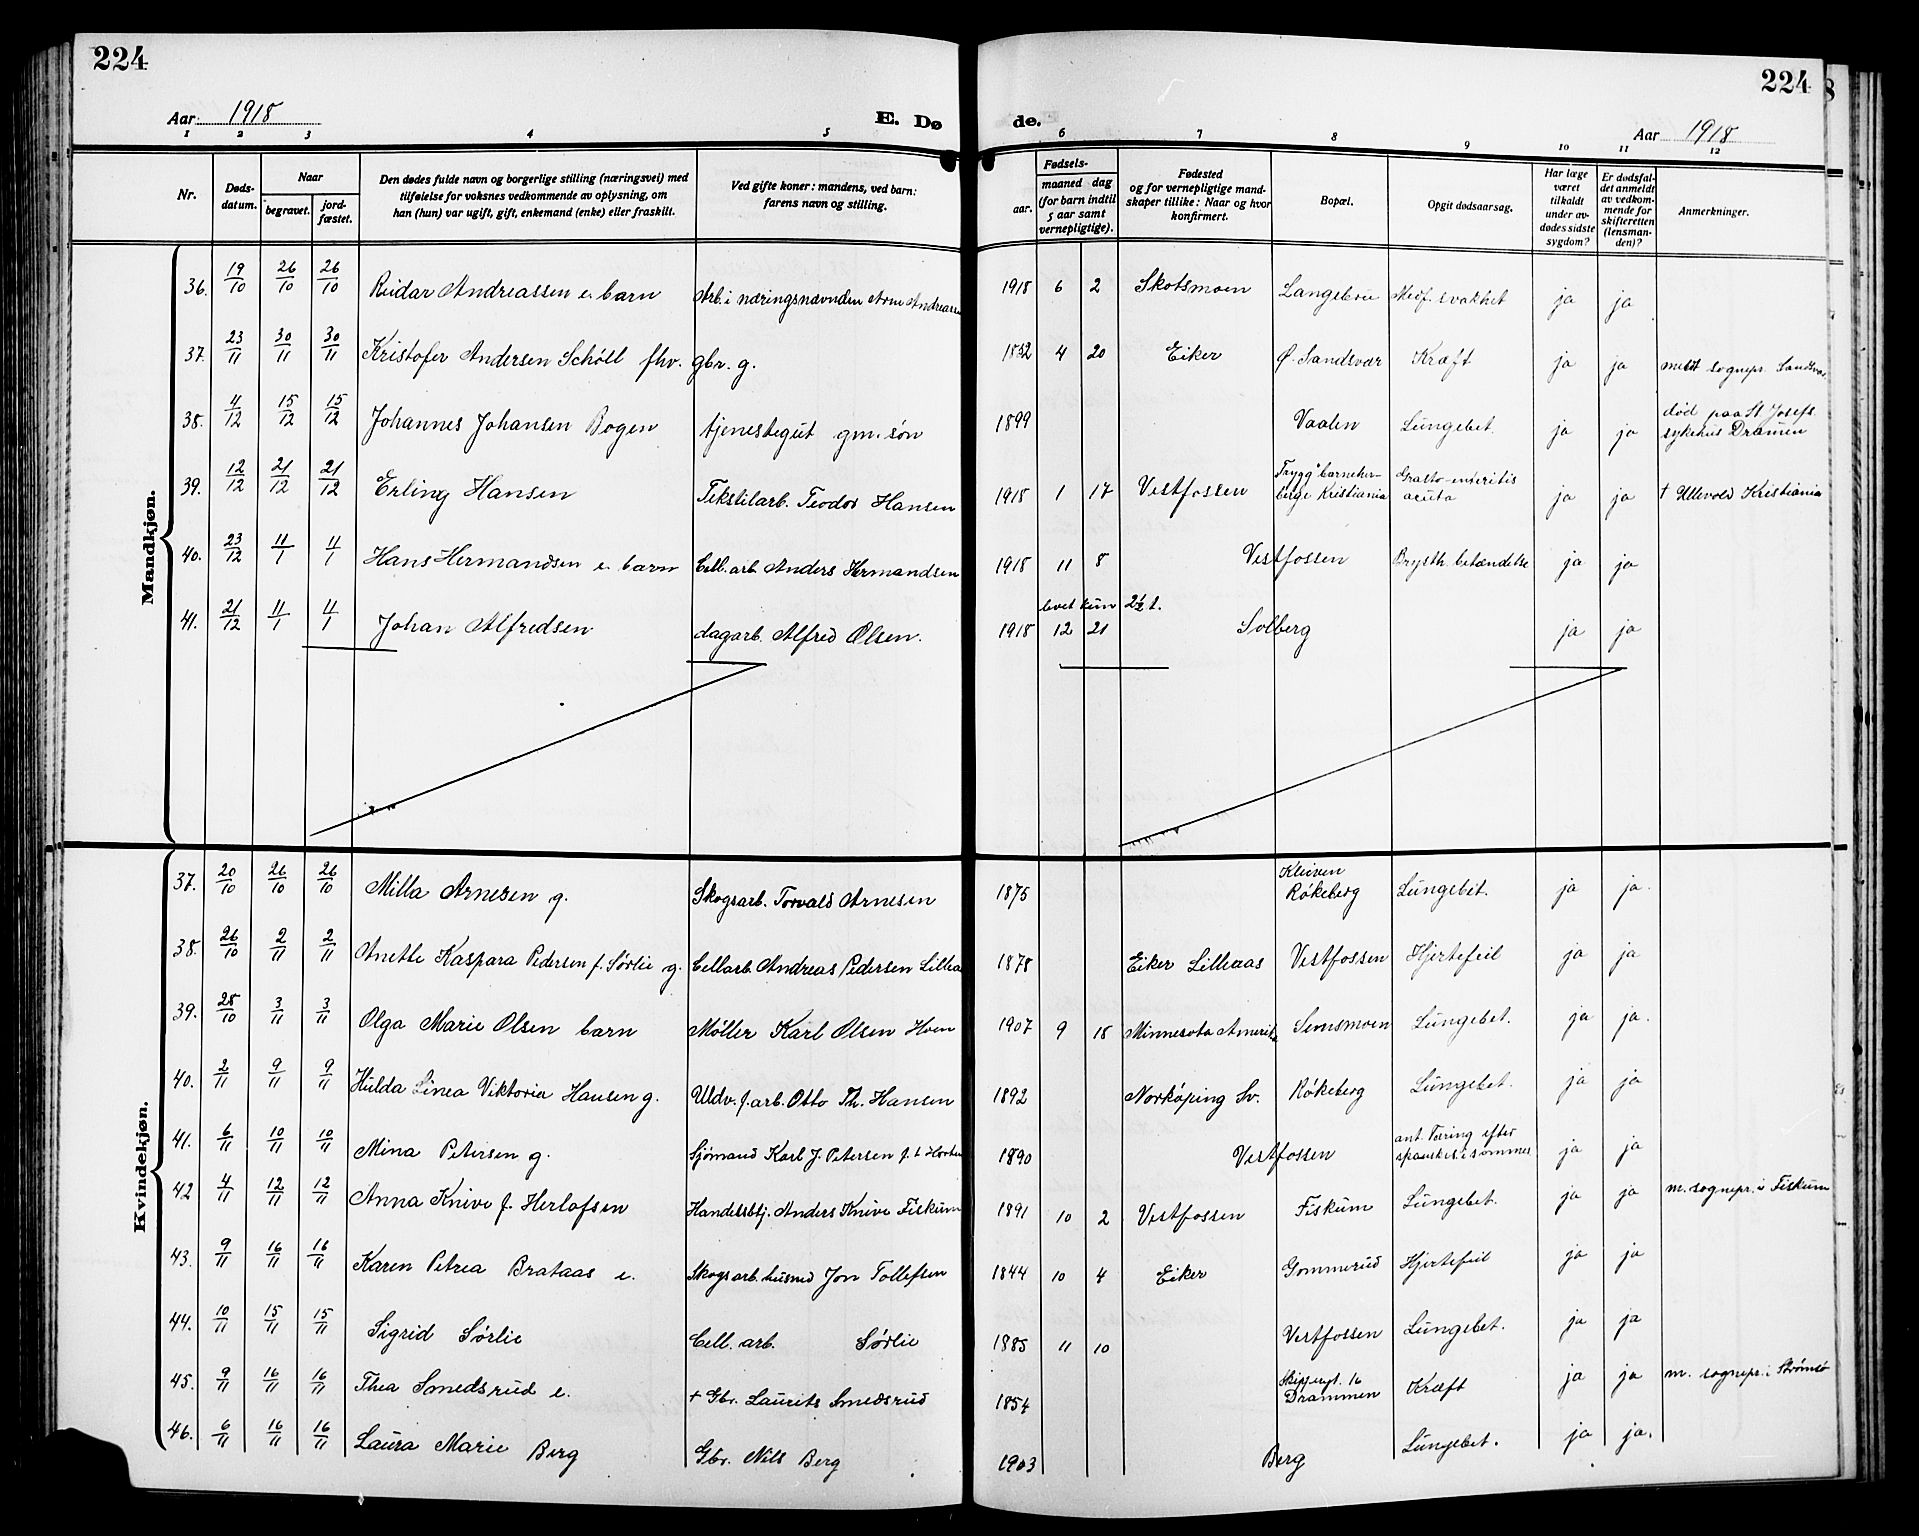 224
224
Aar 1918
E. Dø
de.
Aar 1918
1 2 3 4 5 6 7 8 9 10 11 12
Nr.
Døds-
datum.
Naar
begravet.
jord-
fæstet.
Den dødes fulde navn og borgerlige stilling (næringsvei) med
tilføielse for voksnes vedkommende av oplysning, om
han (hun) var ugift, gift, enkemand (enke) eller fraskilt.
Ved gifte koner: mandens, ved barn:
farens navn og stilling.
Fødsels-
aar.
maaned dag
(for barn indtil
5 aar samt
vernepligtige).
Fødested
og for vernepligtige mand-
skaper tillike: Naar og hvor
konfirmert.
Bopæl.
Opgit dødsaarsag.
Har læge
været
tilkaldt
under av-
dødes sidste
sygdom?
Er dødsfal-
det anmeldt
av vedkom-
mende for
skifteretten
(lensman-
den)?
Anmerkninger.
Mandkjøn.
36. 19/10 26/10 26/10 Reidar Andreassen e. barn Arb. i næringsnævnden Arne Andreassen 1918 6 2 Skotsmoen Medf. svakhet ja ja
37. 23/11 30/11 30/11 Kristofer Andersen Schøll fhv. gbr. g. 1852 4 20 Eiker Ø. Sandsvær Kræft ja ja meldt sognepr. Sandsvær
38. 4/12 15/12 15/12 Johannes Johansen Bogen tjenestegut gm. søn 1899 Vaalen Lungebet. ja ja død paa St. Josefs
sykehus Dramen
39. 12/12 21/12 21/12 Erling Hansen Tekstilarb. Teodor Hansen 1918 1 17 Vestfossen "Trygg" barneher-
berge Kristiania Grasto-enteritis
acuta ja ja † Ullevold Kristiania
40. 23/12 11/1 11/1 Hans Hermandsen e. barn Cell.arb. Anders Hermandsen 1918 11 8 Vestfossen Brysth. betændelse ja ja
levet kun 2½ t.
41. 21/12 11/1 11/1 Johan Alfredsen dagarb. Alfred Olsen. 1918 12 21 Solberg ja ja
Kvindekjøn.
37. 20/10 26/10 26/10 Milla Arnesen g. Skogsarb. Torvald Arnesen 1875 Kleiven
Røkeberg Lungebet. ja ja.
38. 26/10 2/11 2/11 Anette Kaspara Pedersen f. Sørlie g. Cellarb. Andreas Pedersen Lilleaa 1878 Eiker Lilleaas Vestfossen Hjertefeil ja ja
39. 28/10 3/11 3/11 Olga Marie Olsen barn Møller Karl Olsen Hoen 1907 9 18 Minnesota Amerika Semsmoen Lungebet. ja ja.
40. 2/11 9/11 9/11 Hulda Linea Viktoria Hansen g. Uldv. f. arb. Otto Th. Hansen 1892 Norköping Sv. Røkeberg Lungebet. ja ja
41. 6/11 10/11 10/11 Mina Petersen g. Sjømand Karl J. Petersen f. t. Horten 1890 Vestfossen ant. Tæring efter
spanskes. i sommer ja ja
42 4/11 12/11 12/11 Anna Knive f. Herlofsen Handelsbtj. Anders Knive Fiskum 1891 10 2 Vestfossen Fiskum Lungebet. ja ja m. sognepr. i Fiskum
43. 9/11 16/11 16/11 Karen Petrea Brataas e. Skogsarb. husmd Jon Tollefsen 1844 10 4 Eiker Gommerud Hjertefeil ja ja
44. 10/11 15/11 15/11 Sigrid Sørlie Cell. arb. Sørlie 1885 11 10 Vestfossen Lungebet. ja ja
45. 9/11 16/11 16/11 Thea Smedsrud e. + Gbr. Laurits Smedsrud 1854 16
Drammen Kræft ja ja m. sognepr. i Strømsø
46. 6/11 16/11 16/11 Laura Marie Berg Gbr. Nils Berg 1903 Berg Lungebet. ja ja.